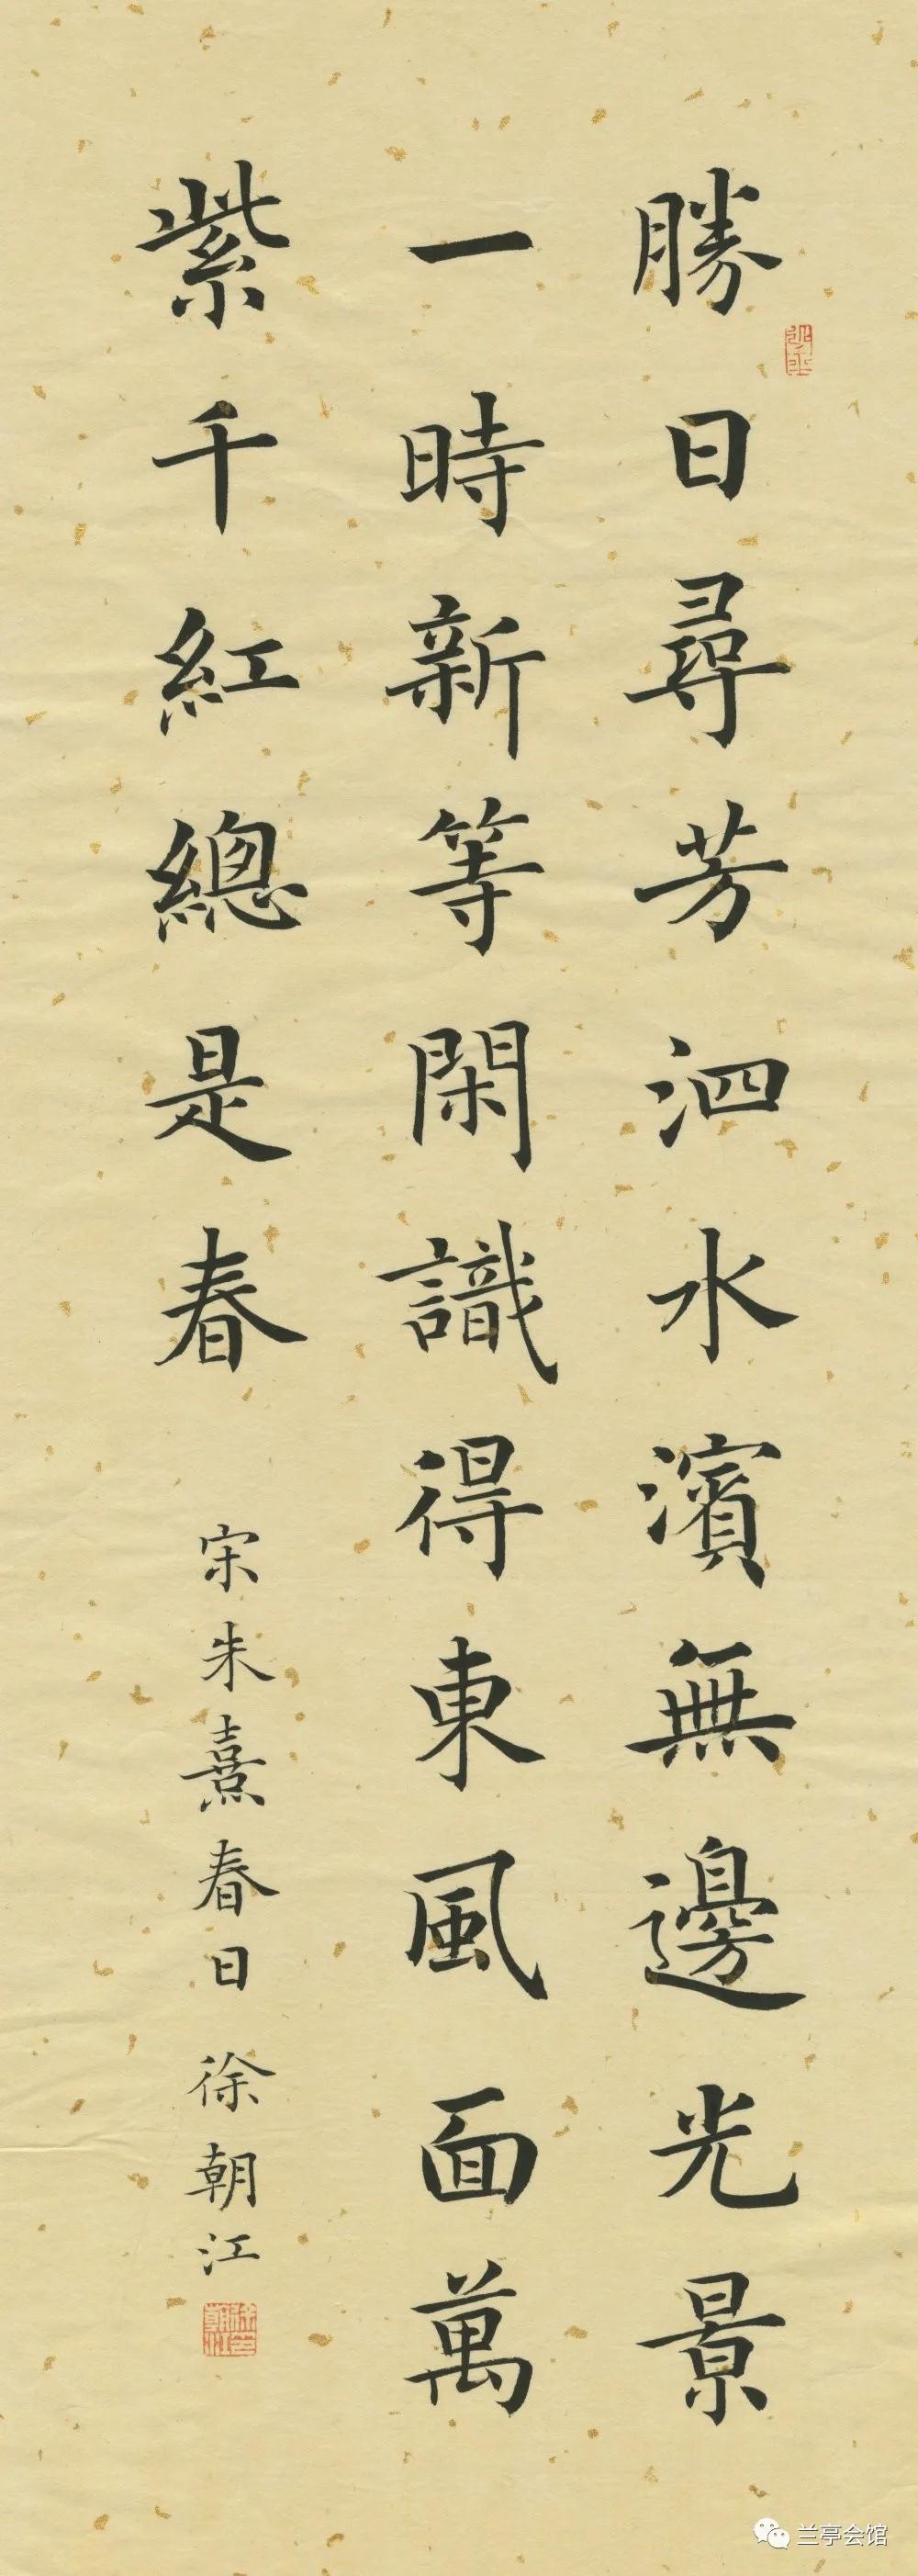 勝日尋芳泗水濱無邊光景
一時新等閑識得東風面萬
紫千紅總是春
宋朱熹春日 徐朝江
兰亭会馆